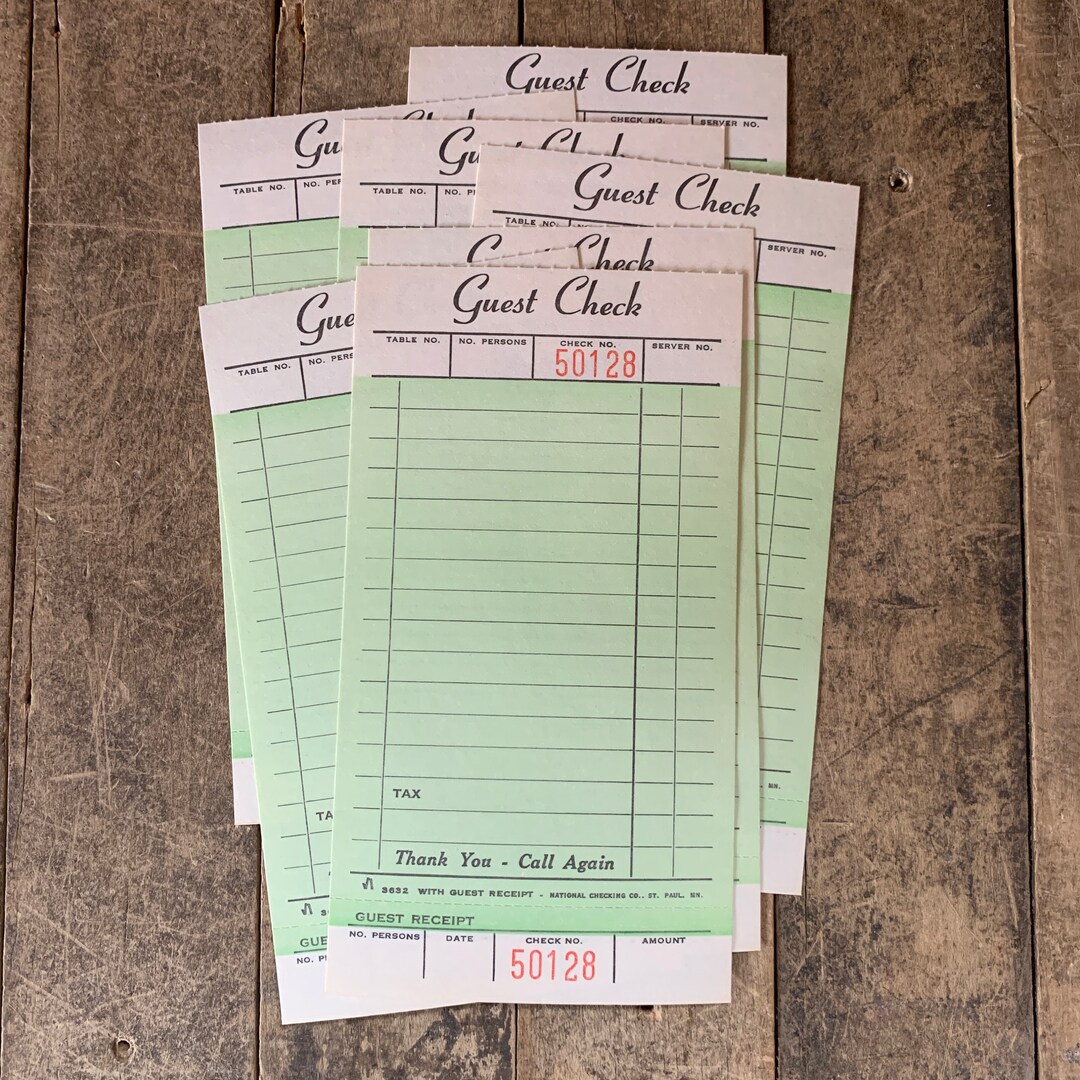 Guest Check
CHECK NO. SERVER NO.
Gu
TABLE NO. NO. PER
Gu Check
TABLE NO. NO. P
Guest Check
TABLE NO.
SERVER NO.
G Check
Gue
TABLE NO. NO. PERS
Guest Check
TABLE NO. NO. PERSONS CHECK NO. SERVER NO.
50128
TAX
TA
Thank You - Call Again
3632 WITH GUEST RECEIPT - NATIONAL CHECKING CO., ST. PAUL, MN.
MN.
GUEST RECEIPT
GUE
NO. PERSONS DATE CHECK NO. AMOUNT
50128
NO. P